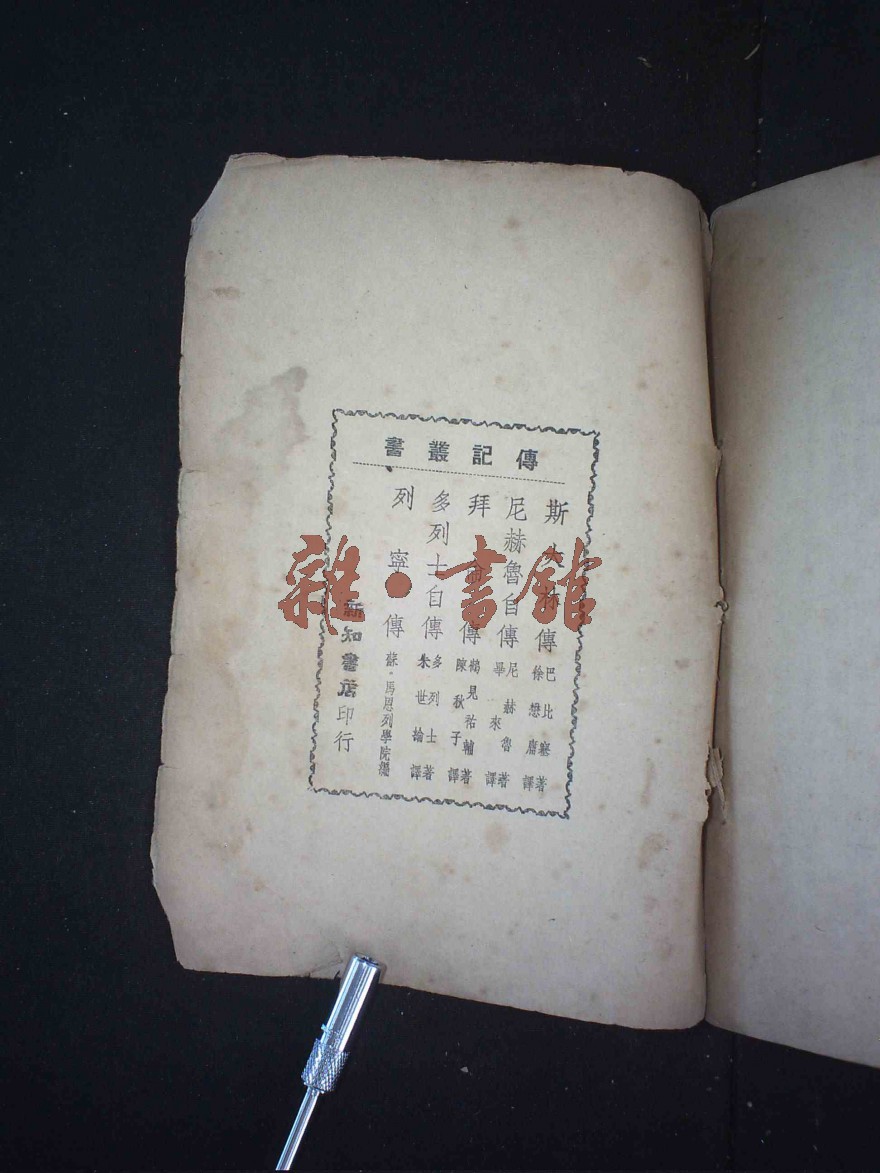 傳記叢書
斯大林傳
巴比塞著
徐懋庸譯
尼赫魯自傳
尼赫魯著
畢來譯
拜倫傳
鶴見祐輔著
陳秋子譯
多列士自傳
多列士著
朱世綸譯
列寧傳
蘇·馬恩列學院編
新知書店印行
雜·書館